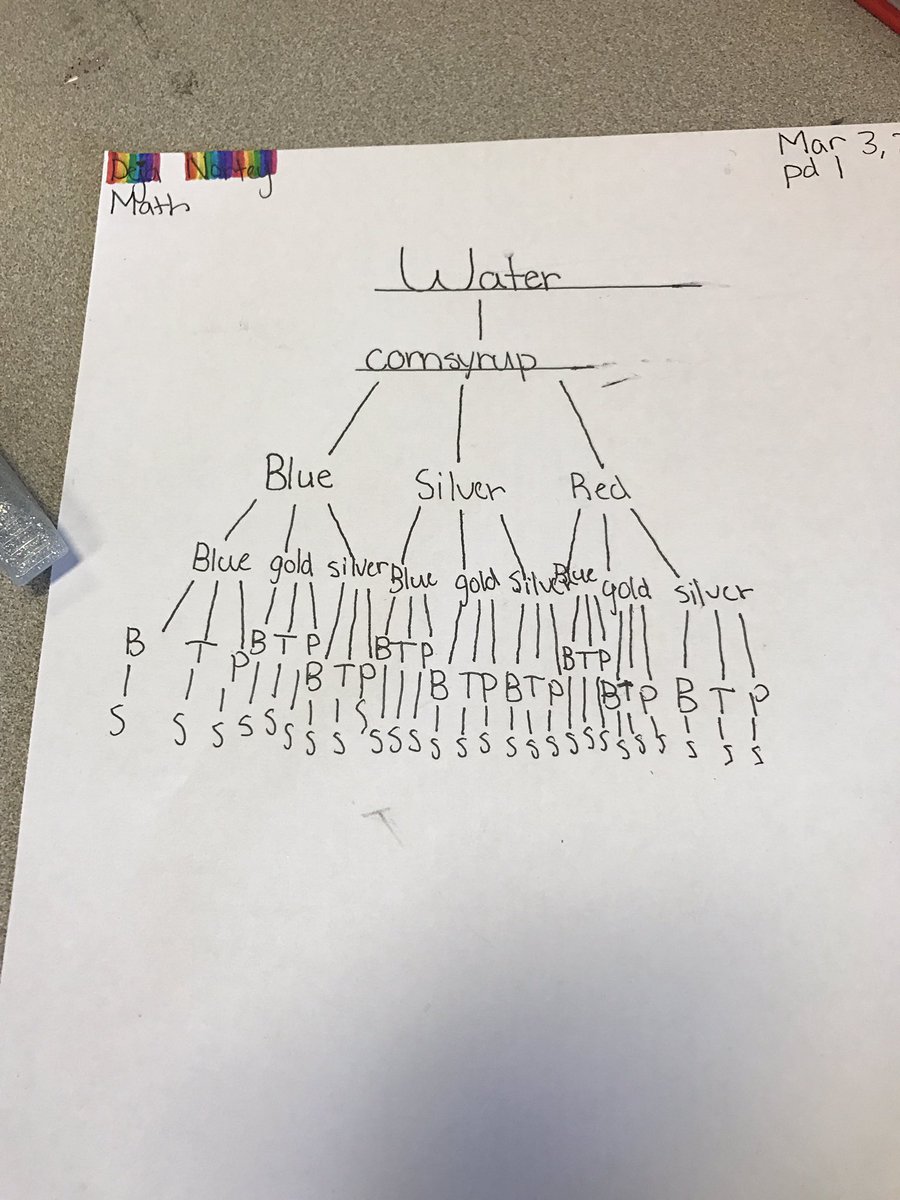 Deja Nortey
Math
Mar 3,
pd 1
Water
cornsyrup
Blue Silver Red
Blue gold silver Blue gold Silver Blue gold silver
B T P B T P B T P B T P B T P B T P B T P B T P B T P
S S S S S S S S S S S S S S S S S S S S S S S S S S S
T